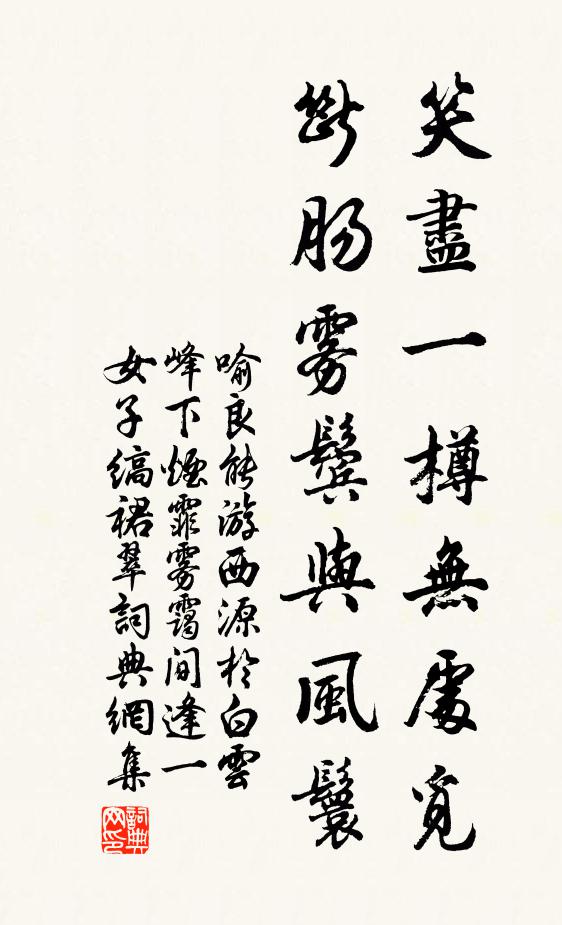 笑盡一樽無處覓
斷腸雾鬓與風鬟
喻良能游西源於白雲
峰下煙霏雾靄间逢一
女子縞裙翠詞典網集
詞典网印